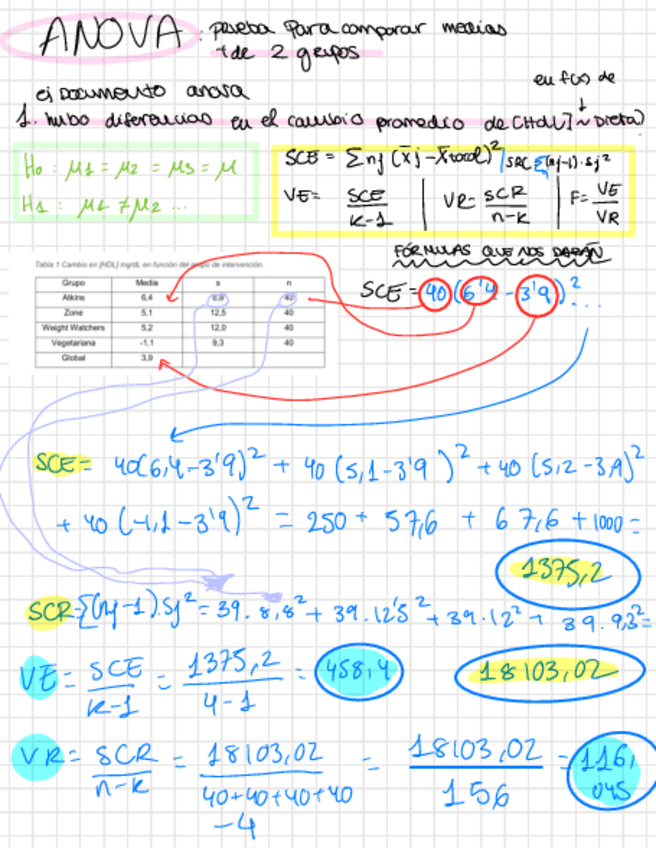 ANOVA : prueba para comparar medias
+ de 2 grupos
ej Documento anova
en f(x) de
↓
1. hubo diferencias en el cambio promedio de [HdL] ~ Dieta)
H₀ : μ1 = μ2 = μ3 = μ
H1 : μ1 ≠ μ2 ...
SCE = Σnj (x̄j - x̄total)² | SRC Σ(nj-1)·sj²
VE = SCE / k-1 | VR = SCR / n-k | F = VE / VR
FÓRMULAS QUE NOS DARÁN
Tabla 1 Cambio en [HDL] mg/dL en función del grupo de intervención.
Grupo Media s n
Atkins 6,4 8,8 40
Zone 5,1 12,5 40
Weight Watchers 5,2 12,0 40
Vegetariana -1,1 9,3 40
Global 3,9
SCE = 40 (6'4 - 3'9)² ...
SCE = 40(6,4-3'9)² + 40 (5,1-3'9)² + 40 (5,2-3,9)²
+ 40 (-1,1-3'9)² = 250 + 57,6 + 67,6 + 1000 =
1375,2
SCR = Σ(nj-1).Sj² = 39.8,8² + 39.12'5² + 39.12² + 39.9,3² =
18103,02
VE = SCE / k-1 = 1375,2 / 4-1 = 458,4
VR = SCR / n-k = 18103,02 / 40+40+40+40 -4 = 18103,02 / 156 = 116,045